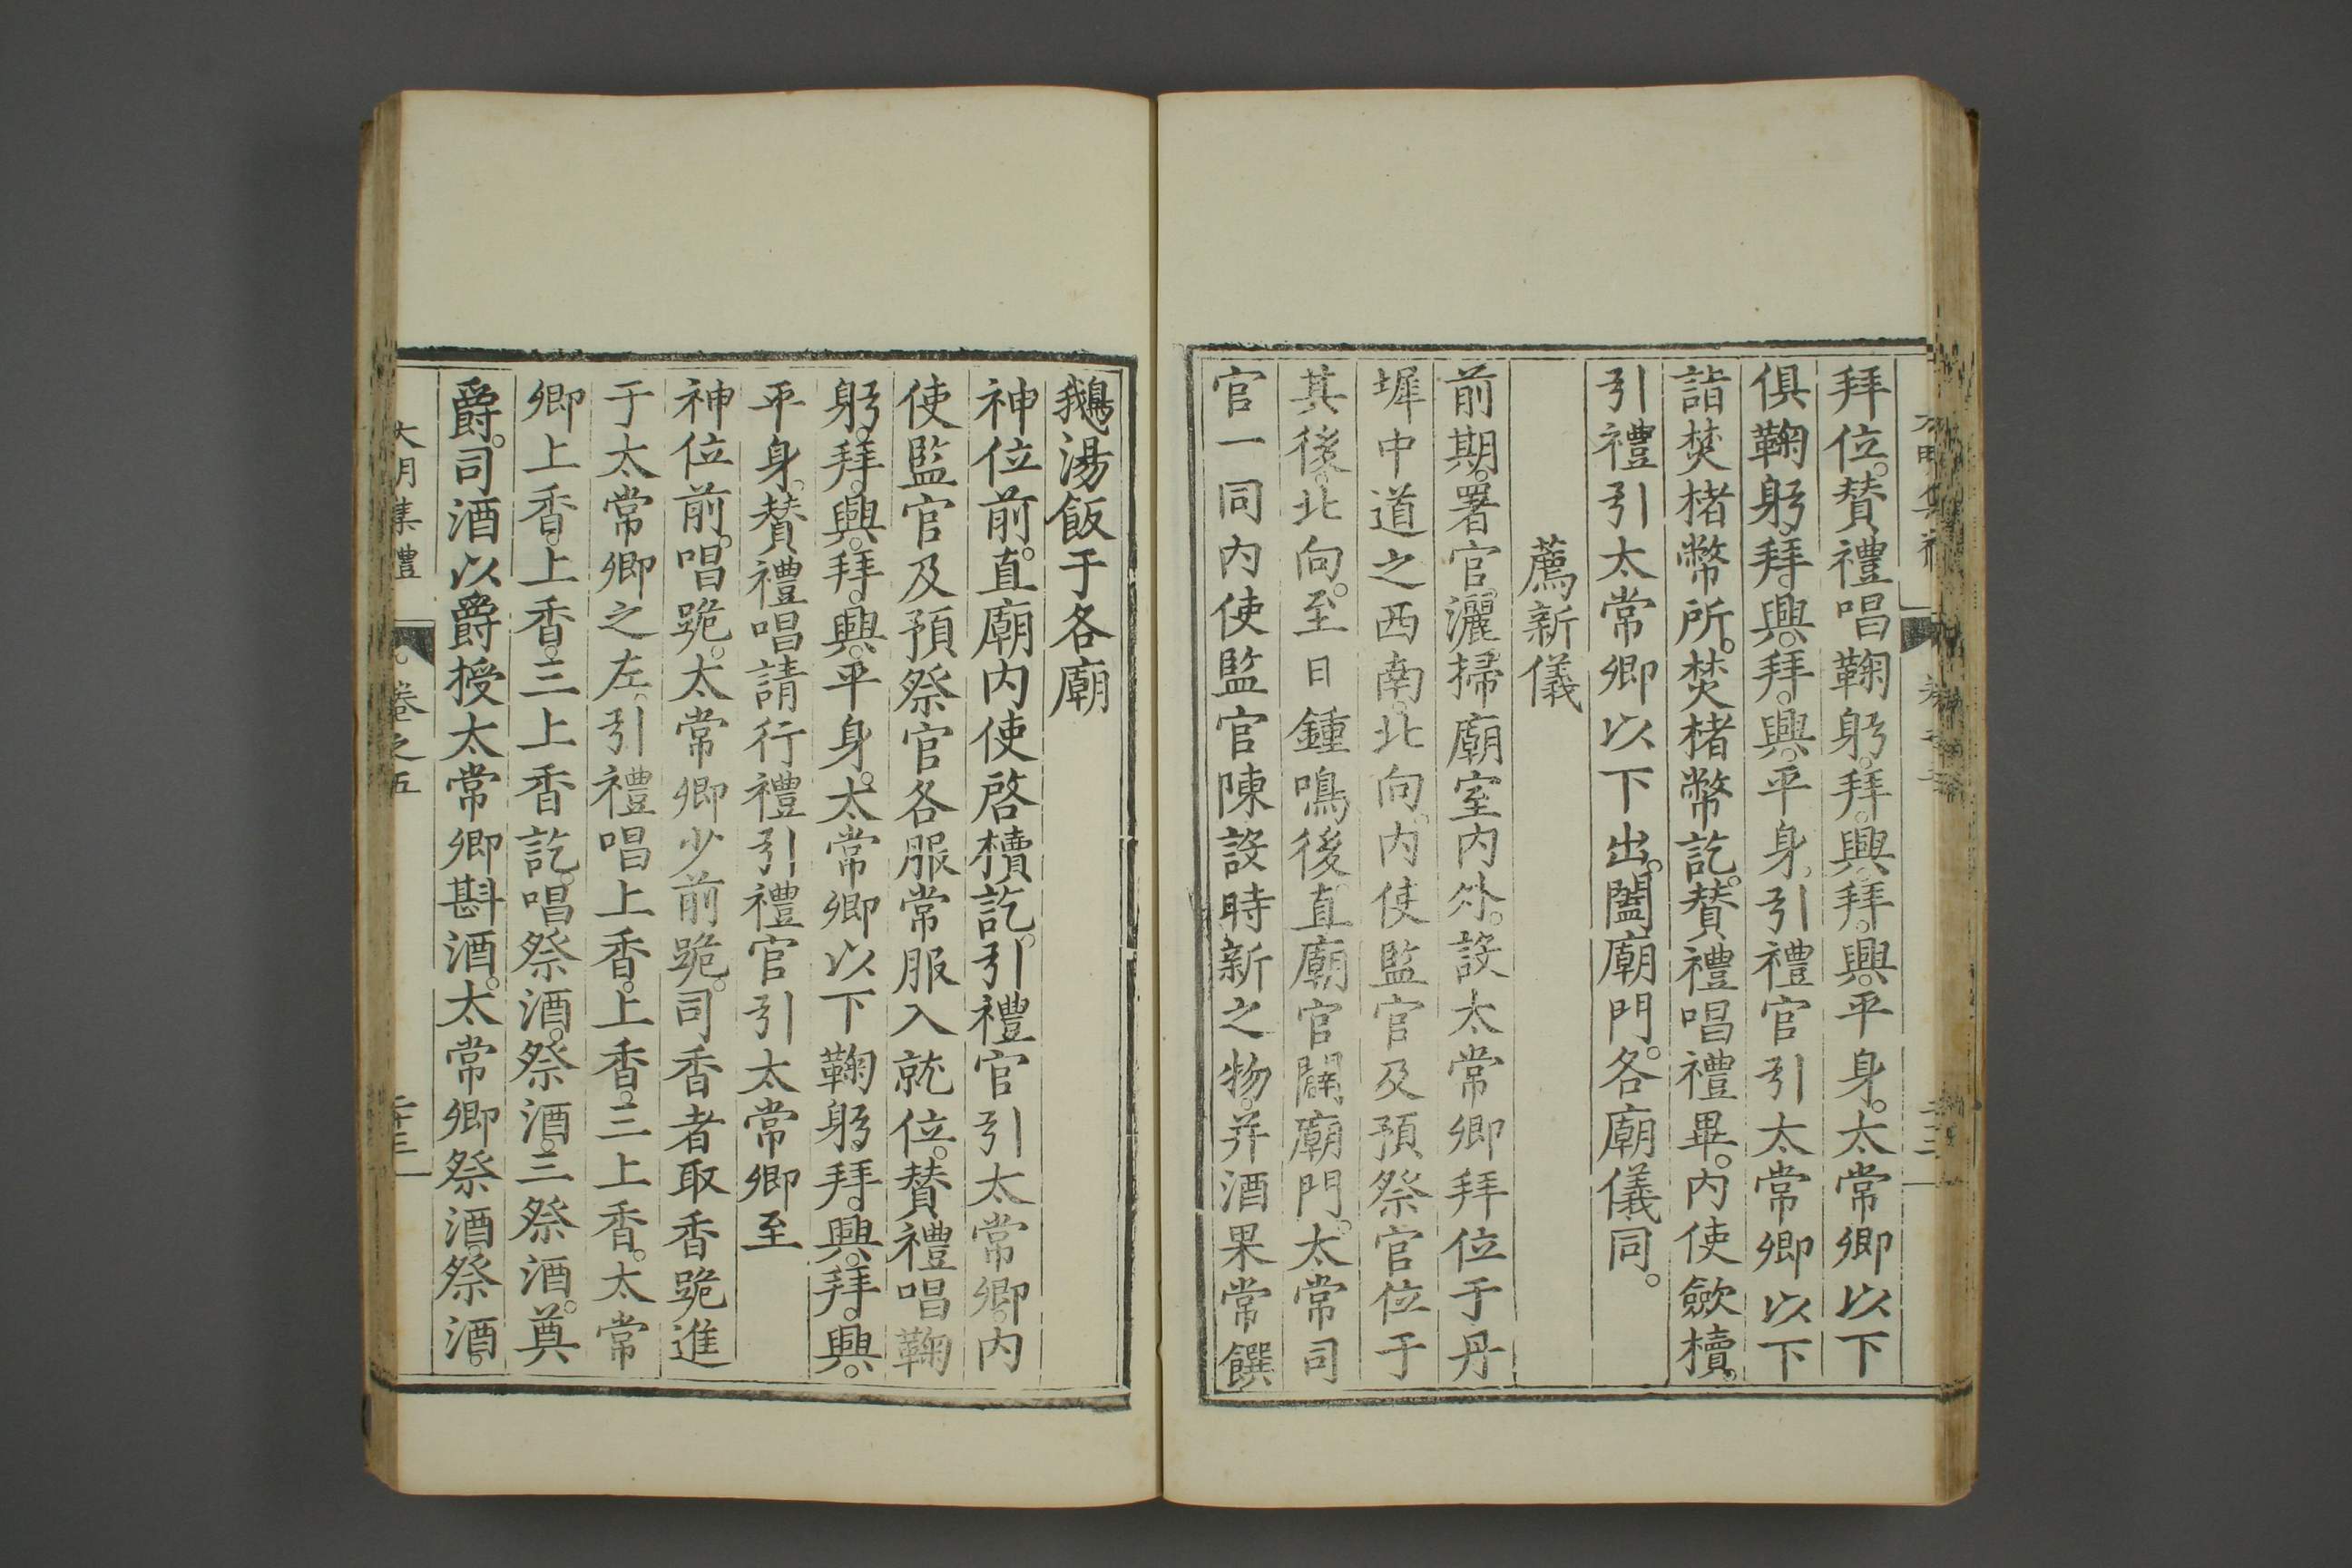 拜位。贊禮唱鞠躬。拜。興。拜。興。平身。太常卿以下
俱鞠躬。拜。興。拜。興。平身。引禮官引太常卿以下
詣焚楮幣所。焚楮幣訖。贊禮唱禮畢。内使歛櫝。
引禮引太常卿以下出。闔廟門。各廟儀同。
薦新儀
前期。署官。灑掃廟室内外。設太常卿拜位于丹
墀中道之西南。北向。内使監官及預祭官位于
其後。北向。至日鍾鳴後。直廟官闢廟門。太常司
官一同内使監官陳設時新之物。并酒果常饌
鵝湯飯于各廟
神位前。直廟内使啓櫝訖。引禮官引太常卿。内
使監官及預祭官各服常服入就位。贊禮唱鞠
躬。拜。興。拜。興。平身。太常卿以下鞠躬。拜。興。拜。興。
平身。贊禮唱請行禮引禮官引太常卿至
神位前。唱跪。太常卿少前跪。司香者取香跪進
于太常卿之左。引禮唱上香。上香。三上香。太常
卿上香。上香。三上香訖。唱祭酒。祭酒。三祭酒。奠
爵。司酒以爵授太常卿斟酒。太常卿祭酒。祭酒。
大明集禮 卷之五